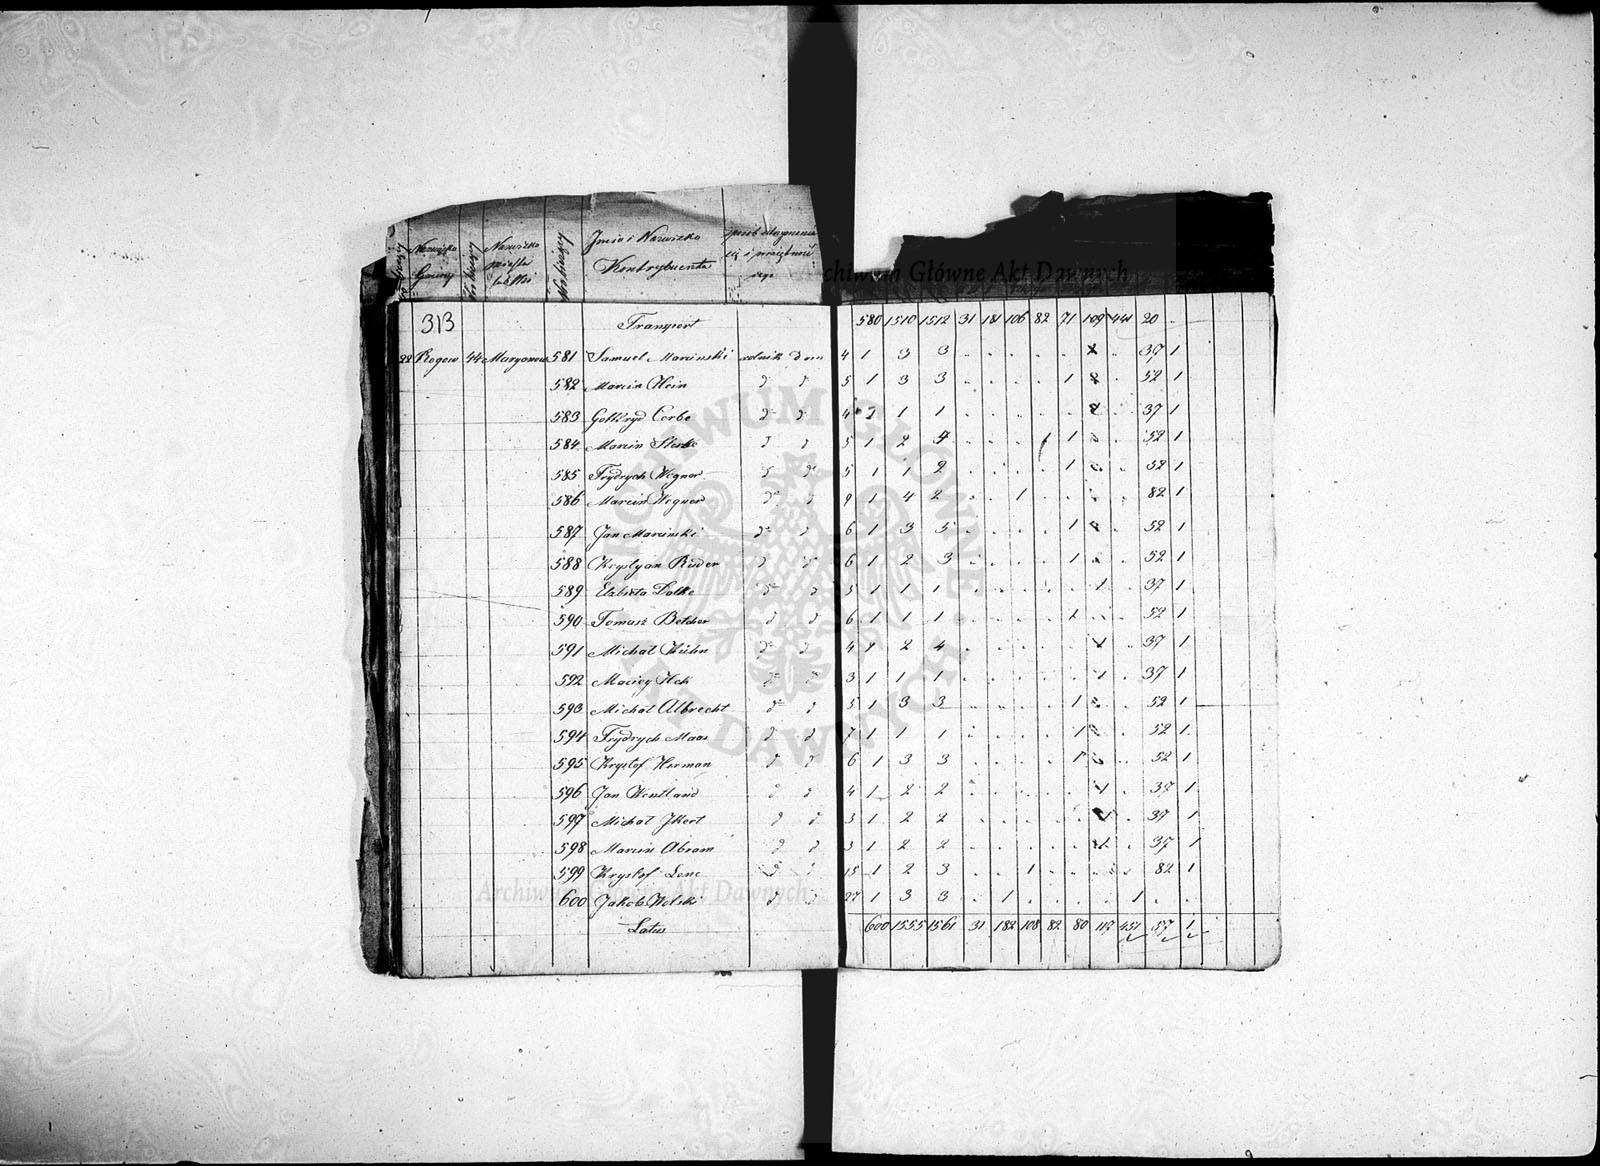 Nazwisko Gminy
Nazwisko
Imie i Nazwisko Kontrybuenta
Archiwum Główne Akt Dawnych
313 Transport 580 1510 1512 31 181 106 82 71 109 441 20
22 Rogow 44 Maryanow 581 Samuel Marcinski rolnik dom 4 1 3 3 37 1
582 Marcin Hein d d 5 1 3 3 1 52 1
583 Gottfryd Corbe d d 4 1 1 1 37 1
584 Marcin d d 5 1 2 4 1 52 1
585 Frydrych Wegner d d 5 1 1 2 1 52 1
586 Marcin Wegner d d 9 1 4 2 1 82 1
587 Jan Marcinski d d 6 1 3 5 1 52 1
588 Krystyan d d 6 1 2 3 1 52 1
589 Elzbieta d d 5 1 1 1 1 37 1
590 Tomasz Betcher d d 6 1 1 1 1 52 1
591 Michał Kühn d d 4 1 2 4 1 37 1
592 Maciey d d 3 1 1 1 1 37 1
593 Michał Albrecht d d 5 1 3 3 1 52 1
594 Frydrych Maas d d 7 1 1 1 1 52 1
595 Krysztof Herman d d 6 1 3 3 1 52 1
596 Jan Wentland d d 4 1 2 2 1 37 1
597 Michał Ikert d d 3 1 2 2 1 37 1
598 Marcin Abram d d 3 1 2 2 1 37 1
599 Krysztof Lenc d d 15 1 2 3 1 82 1
600 Jakob Wolski d d 27 1 3 3 1 1
Latus 600 1555 1561 31 182 108 82 80 117 451 57 1
ARCHIWUM GŁÓWNE AKT DAWNYCH
Archiwum Główne Akt Dawnych